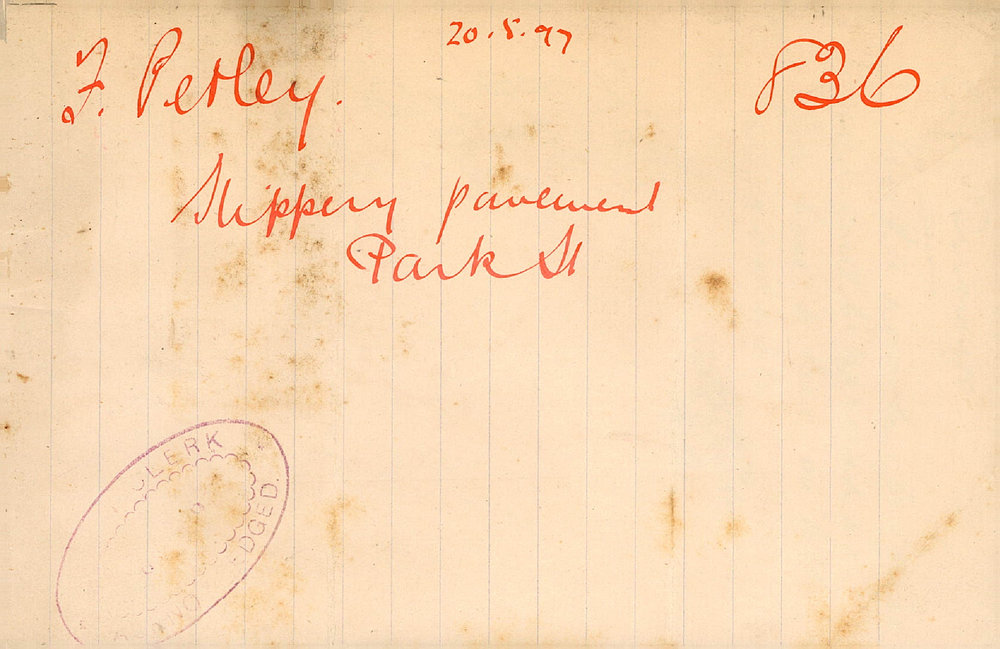 20.5.97
F. Petley.
836
Slippery pavement
Park St
CLERK